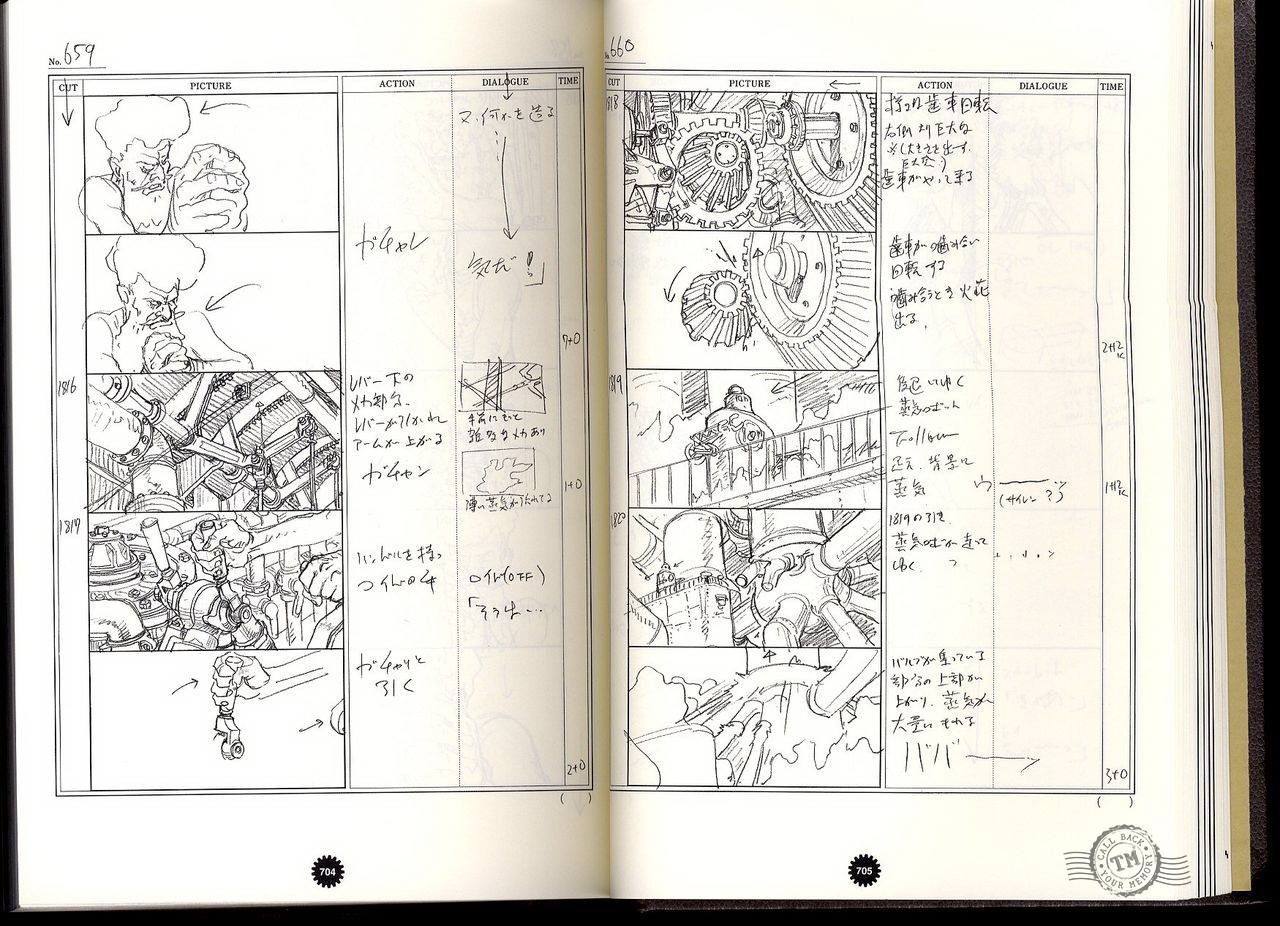 No. 659
CUT PICTURE ACTION DIALOGUE TIME
又、何かを造る
ガチャン
気だ!」
7+0
1816
レバー下の
メカ部分.
レバーが引かれ
アームが上がる
ガチャン
手前にもっと
雑多なメカあり
薄い蒸気が流れてる
1+0
1817
ハンドルを持つ
ロイド(OFF)
「そうは…
ガチャリと
引く
2+0
( )
704
No. 660
CUT PICTURE ACTION DIALOGUE TIME
1818
歯車回転
右側より巨大な
※(大きさを出す.
巨大さ)
歯車がやって来る
歯車が噛み合い
回転する
噛み合うとき火花
出る.
2+12
1819
蒸気
Follow
背景に
蒸気
(サイレン?)
1+12
1820
1819の引き
ゆく.
バルブが集っている
部分の上部が
上がり、蒸気が
大量にもれる
ババー
3+0
( )
705
CALL BACK
TM
YOUR MEMORY